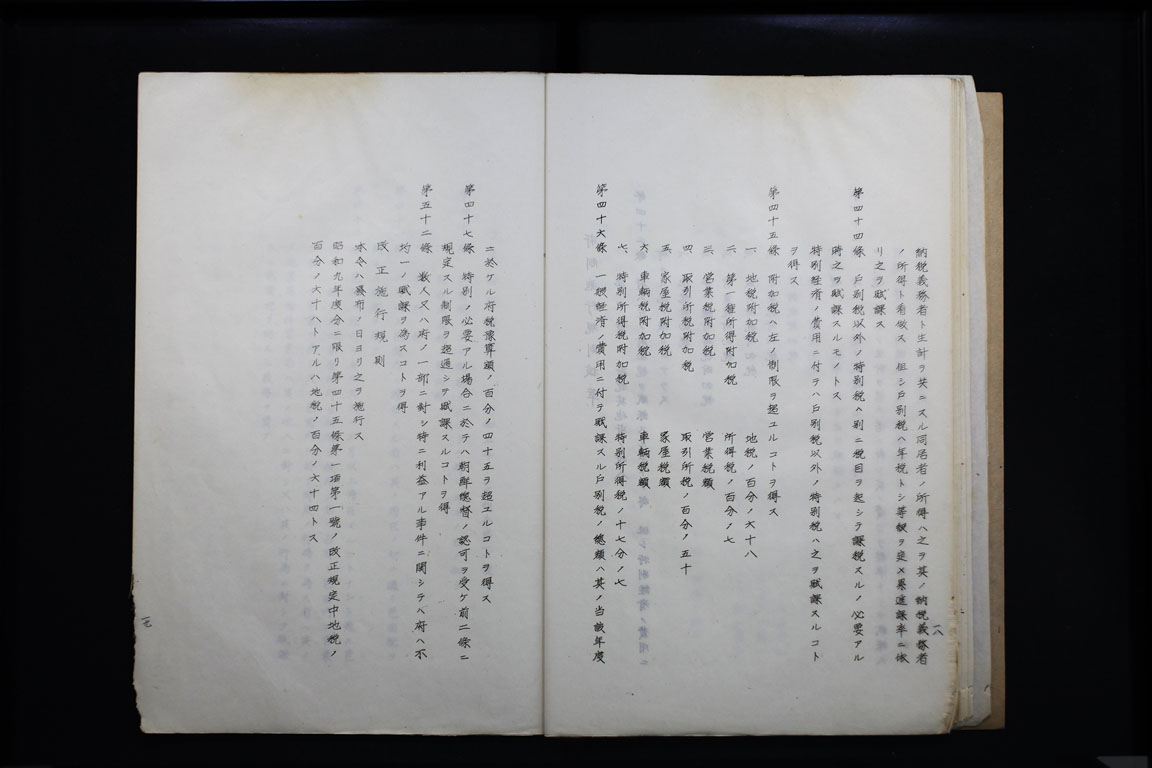 納稅義務者ト生計ヲ共ニスル同居者ノ所得ハ之ヲ其ノ納稅義務者
ノ所得ト看做ス 但シ戶別稅ハ年稅トシ等級ヲ定メ累進課率ニ依
リ之ヲ賦課ス
第四十四條 戶別稅以外ノ特別稅ハ別ニ稅目ヲ起シテ課稅スルノ必要アル
時之ヲ賦課スルモノトス
特別經濟ノ費用ニ付テハ戶別稅以外ノ特別稅ハ之ヲ賦課スルコト
ヲ得ス
第四十五條 附加稅ハ左ノ制限ヲ超ユルコトヲ得ス
一、地稅附加稅 地稅ノ百分ノ六十八
二、第一種所得附加稅 所得稅ノ百分ノ七
三、營業稅附加稅 營業稅額
四、取引所稅附加稅 取引所稅ノ百分ノ五十
五、家屋稅附加稅 家屋稅額
六、車輛稅附加稅 車輛稅額
七、特別所得稅附加稅 特別所得稅ノ十七分ノ七
第四十六條 一般經濟ノ費用ニ付テ賦課スル戶別稅ノ總額ハ其ノ當該年度
一八
ニ於ケル府稅豫算額ノ百分ノ四十五ヲ超ユルコトヲ得ス
第四十七條 特別ノ必要アル場合ニ於テハ朝鮮總督ノ認可ヲ受ケ前二條ニ
規定スル制限ヲ超過シテ賦課スルコトヲ得
第五十二條 數人又ハ府ノ一部ニ對シ特ニ利益アル事件ニ關シテハ府ハ不
均一ノ賦課ヲ爲スコトヲ得
改正施行規則
本令ハ發布ノ日ヨリ之ヲ施行ス
昭和九年度分ニ限リ第四十五條第一項第一號ノ改正規定中地稅ノ
百分ノ六十八トアルハ地稅ノ百分ノ六十四トス
一九